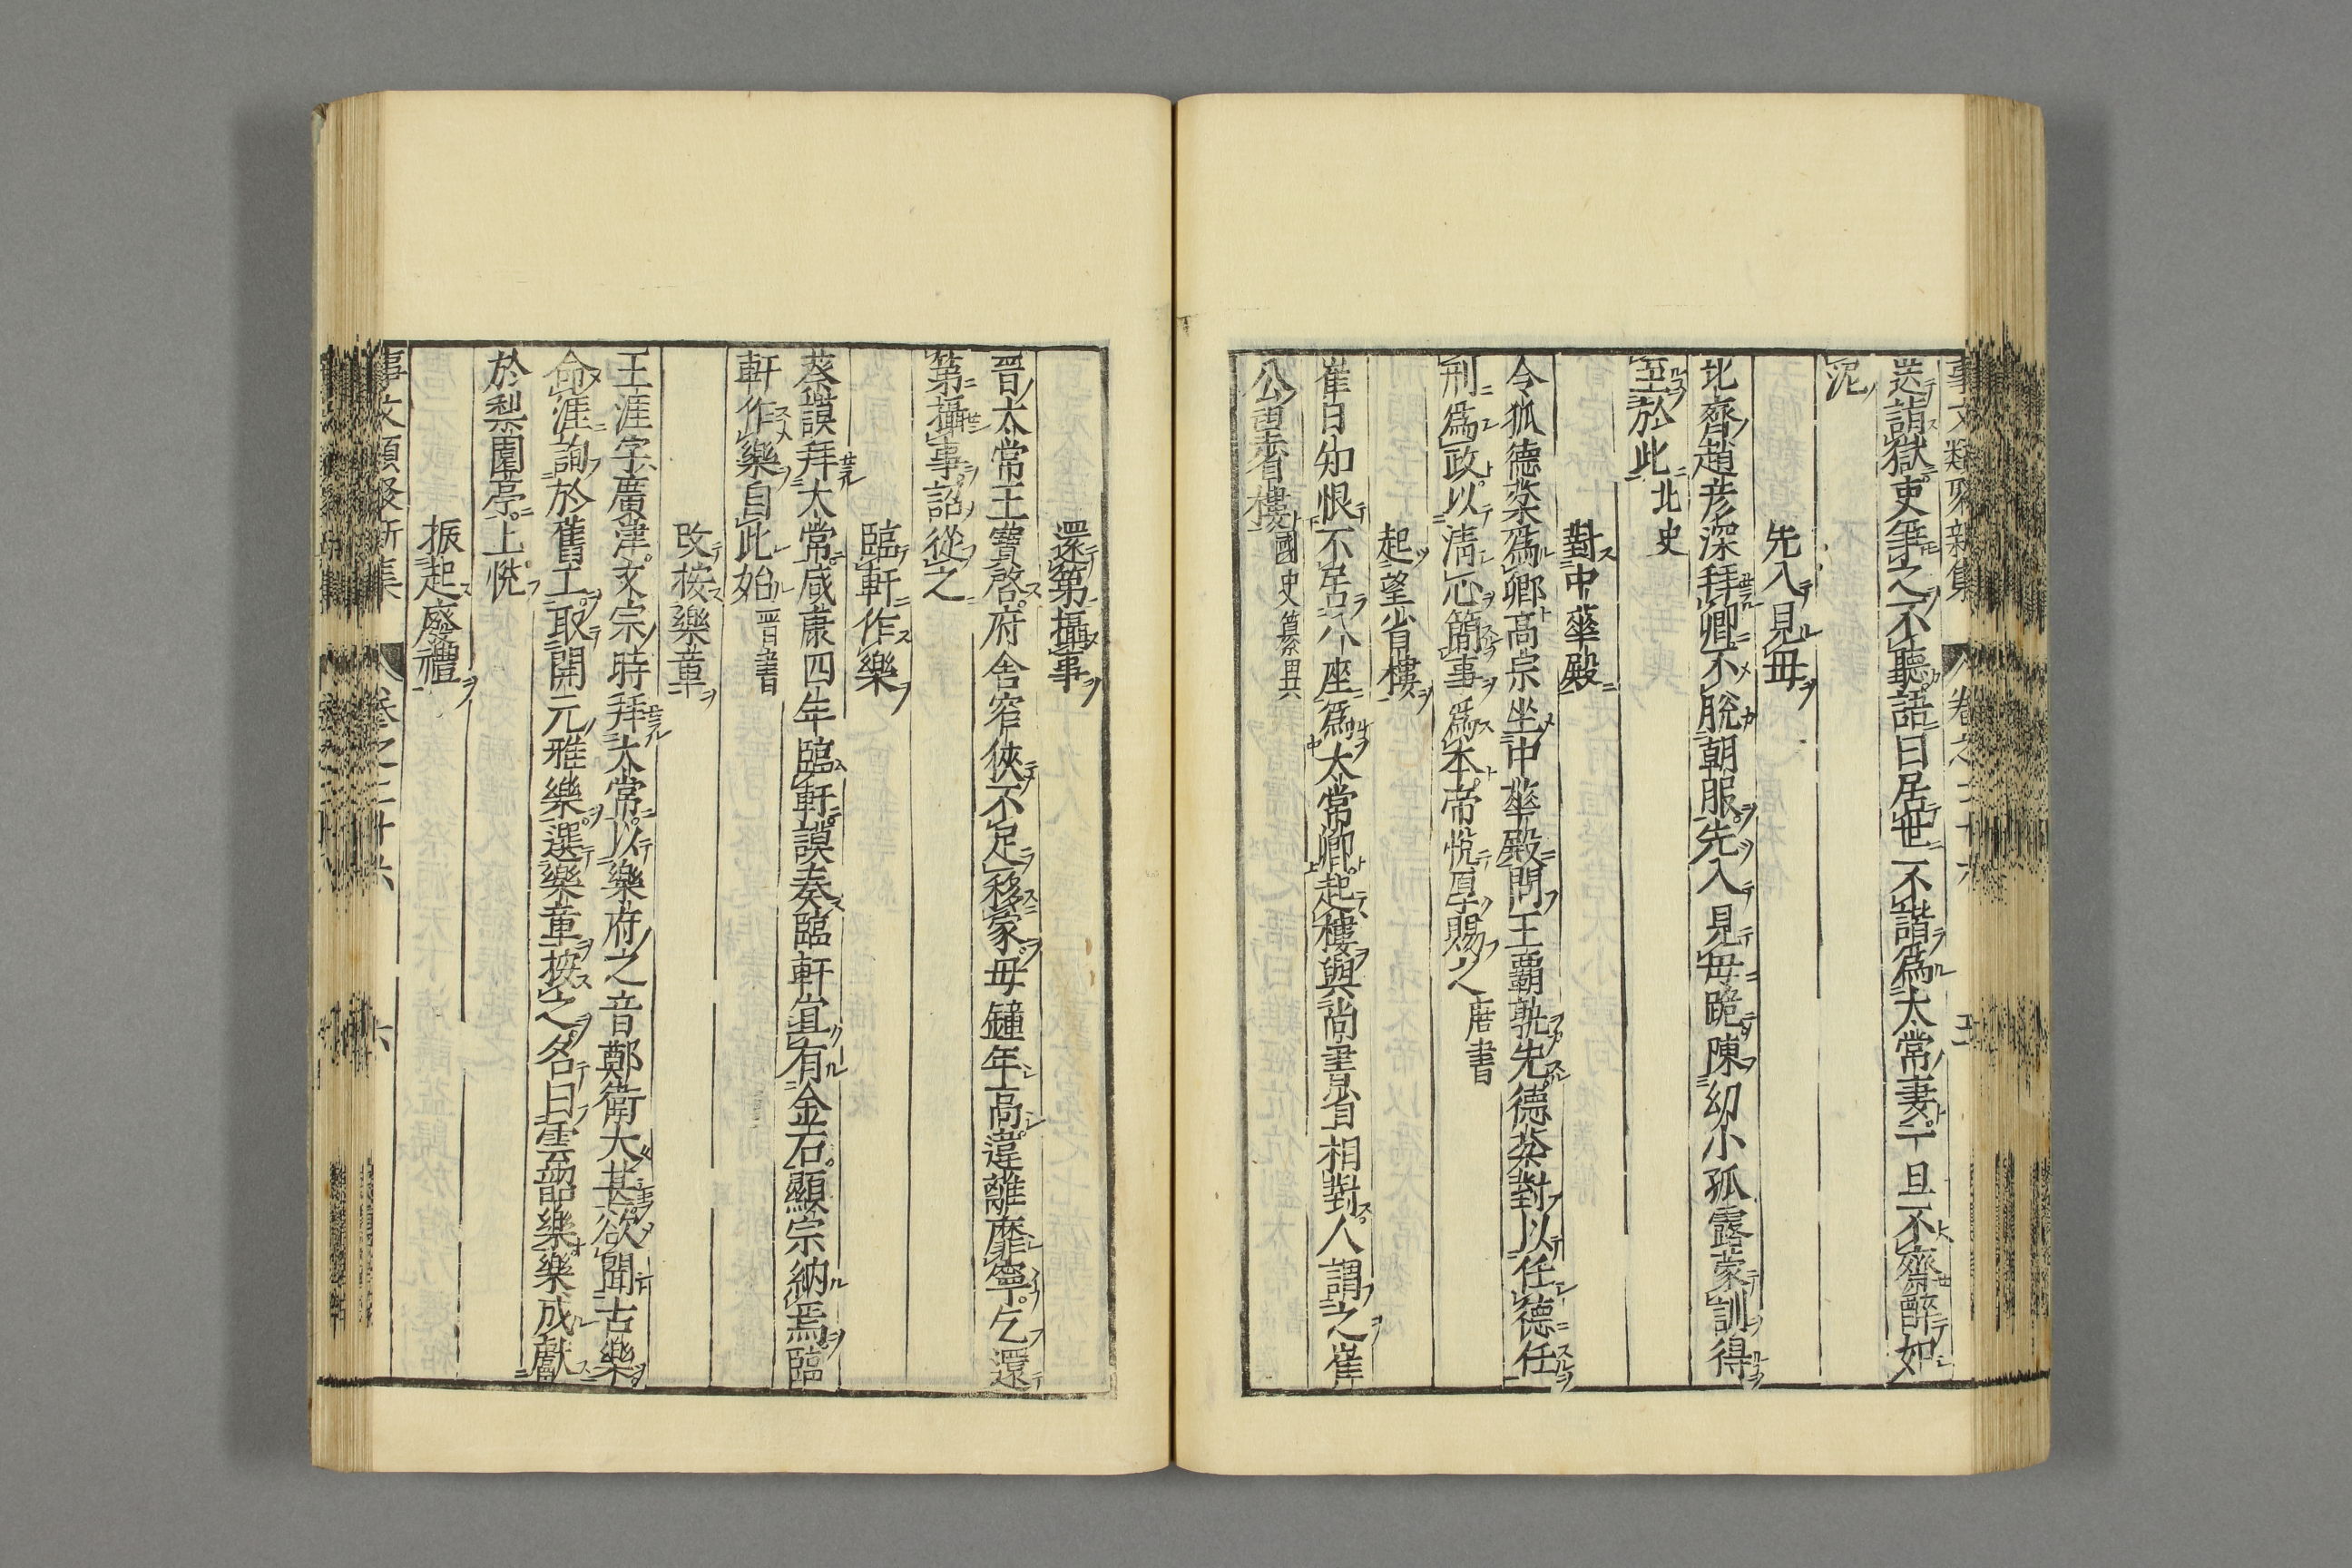 事文類聚新集 卷之二十六 五
送詣獄吏爭之不聽語曰居世不諧爲太常妻一旦不齋醉如
泥
先入見母
北齊趙彦深拜卿不脫朝服先入見母跪陳幼小孤露蒙訓得
至於此 北史
對中華殿
令狐德棻爲卿高宗坐中華殿問王霸孰先德棻對以任德任
刑爲政以清心簡事爲本帝悅厚賜之 唐書
起望省樓
崔日知恨不居八座爲太常卿起樓與尚書省相對人謂之崔
公望省樓 國史纂異
還第攝事
晉太常王寶啓府舍窄俠不足移家母鍾年高違離靡寧乞還
第攝事詔從之
臨軒作樂
蔡謨拜太常咸康四年臨軒謨奏臨軒宜有金石顯宗納焉臨
軒作樂自此始 晋書
改按樂章
王涯字廣津文宗時拜太常以樂府之音鄭衛大甚欲聞古樂
命涯詢於舊工取開元雅樂選樂童按之名曰雲韶樂樂成獻
於梨園亭上悅
振起廢禮
事文類聚新集 卷之二十六 六